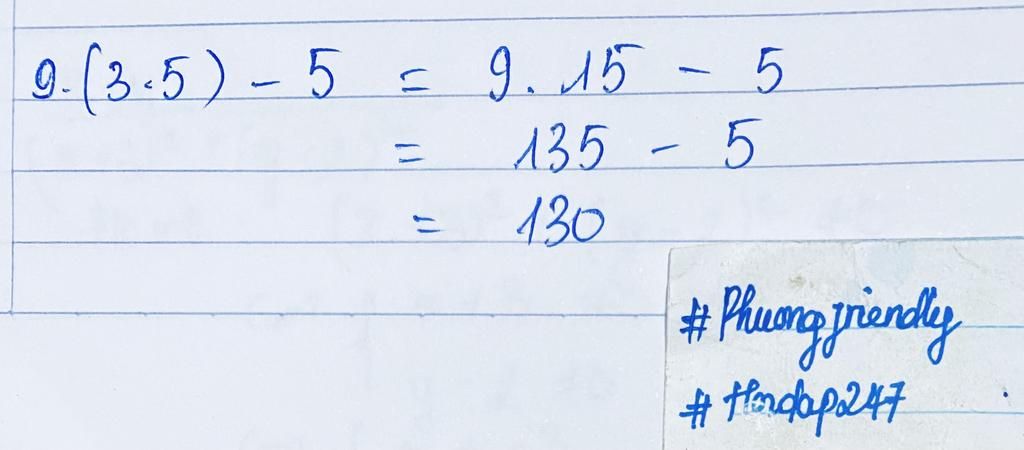 9.(3.5) - 5 = 9.15 - 5
= 135 - 5
= 130
# Phuongfriendly
# Hoidap247